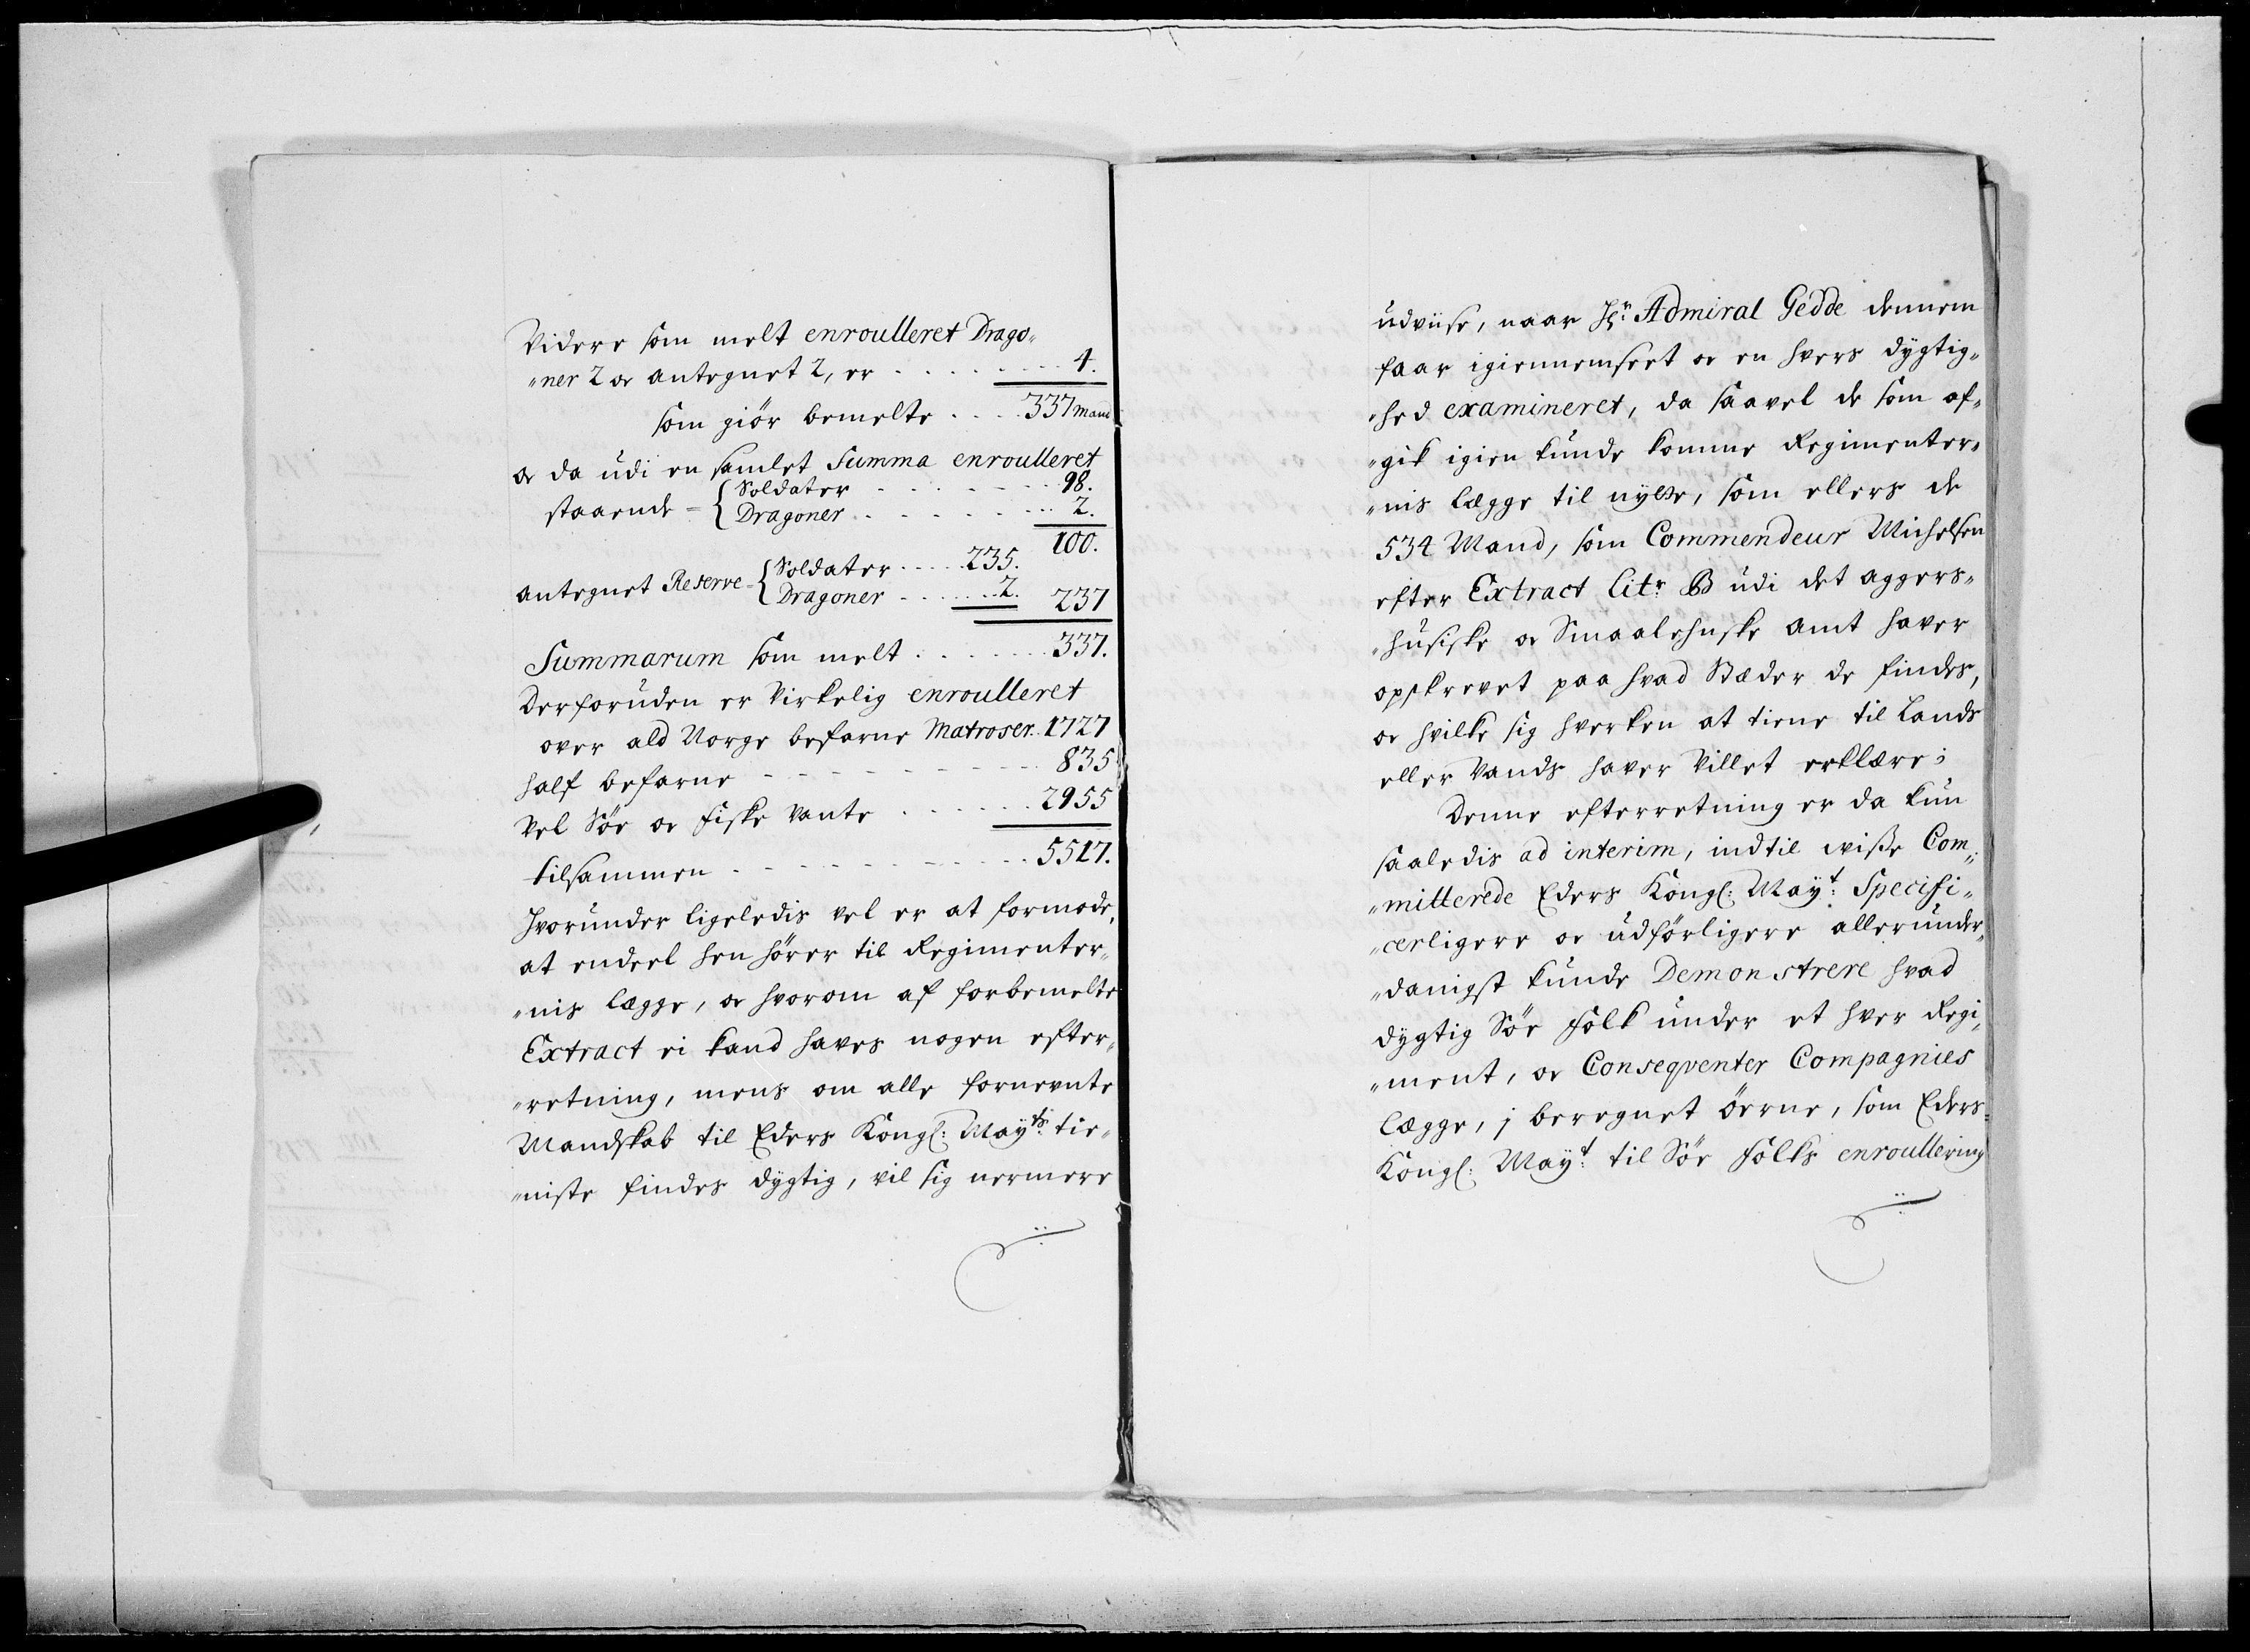 Videre som melt enroulleret Drago„
„ner 2 oc antegnet 2, er . . . . . . . . 4.
som giör bemelte . . . . 337 mand
oc da udi en samlet Summa enroulleret
staaende = { Soldater - - - - - - - 98.
Dragoner - - - - - - - 2.
100.
antegnet Reserve = { Soldater . . . . . 235.
Dragoner - - - - - 2. 237
Summarum som melt . . . . . . . . 337.
Derforuden er Virkelig enroulleret
over ald Norge befarne Matroser . . 1727
half befarne - - - - - - - - - - 835
Vel Söe oc Fiske vante . . . . . . . 2955
tilsammen - - - - - - - - - - 5517.
Hvorunder ligeledis vel er at formode,
at endeel hen hörer til Regimenter„
„nis Lægge, oc hvorom af forbemelte
Extract ei kand haves nogen efter„
„retning, mens om alle fornevnte
Mandskab til Eders Kongl: Mayts: tie„
„niste findes dygtig, vil sig nermere
udviise, naar Hr: Admiral Gedde dennem
faar igiennemseet oc en hvers dygtig„
„hed examineret, da saavel de som af„
„gik igien kunde komme Regimenter„
„nis Lægge til nytte, som ellers de
534 Mand, som Commendeur Michelsen
efter Extract Litr B udi det Aggers„
„husiske oc Smaalehnske amt haver
opskrevet paa hvad Stæder de findes,
oc hvilke sig hverken at tiene til Lands
eller Vands haver Villet erklære;
Denne efterretning er da kun
saaledis ad interim, indtil wisse Com„
„mitterede Eders Kongl: Mayt: Specifi„
„cerligere oc udförligere allerunder„
„danigst kunde Demonstrere hvad
dygtig Söe Folk under et hver Regi„
„ment, oc Conseqventer Compagnies
Lægge, j beregnet öerne, som Eders
Kongl: Mayt: til Söe Folks enroullering